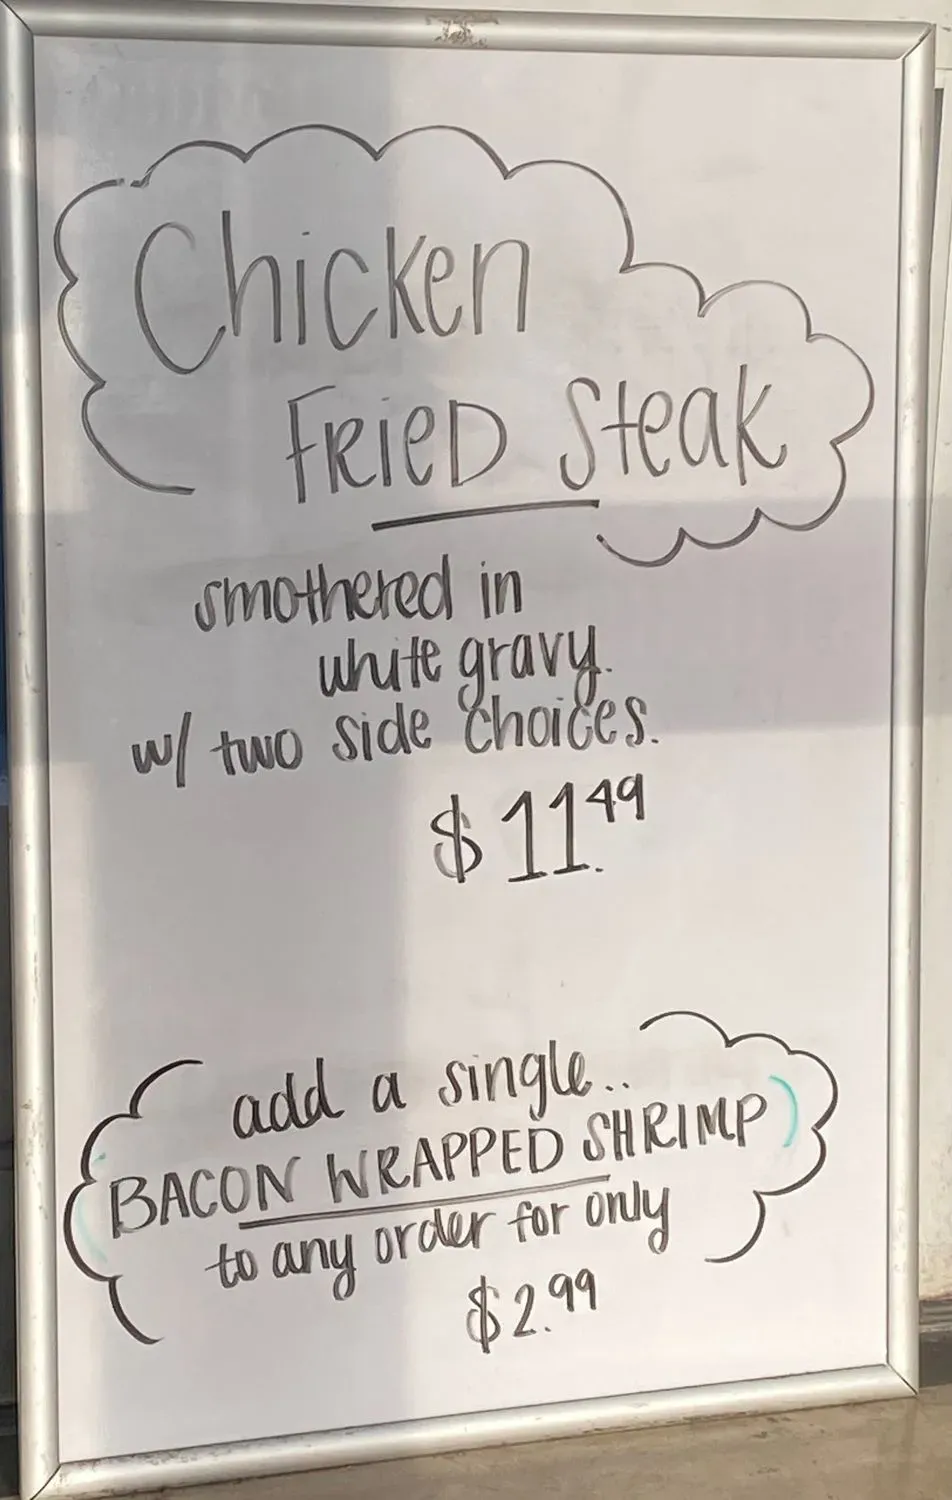 Chicken
FRieD Steak
smothered in
white gravy.
w/ two side choices.
$11.49
add a single..
BACON WRAPPED SHRIMP
to any order for only
$2.99